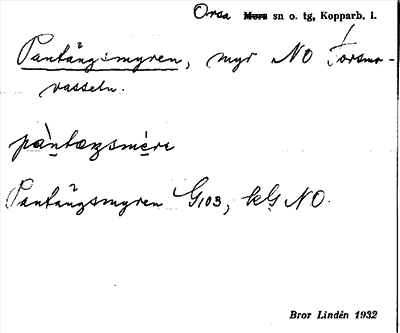 Orsa Mora sn o. tg, Kopparb. l.
Pantängsmyren, myr NO Torsmo-
vasseln.
pàntæŋsmèrι
Pantängsmyren G103, kg NO.
Bror Lindén 1932